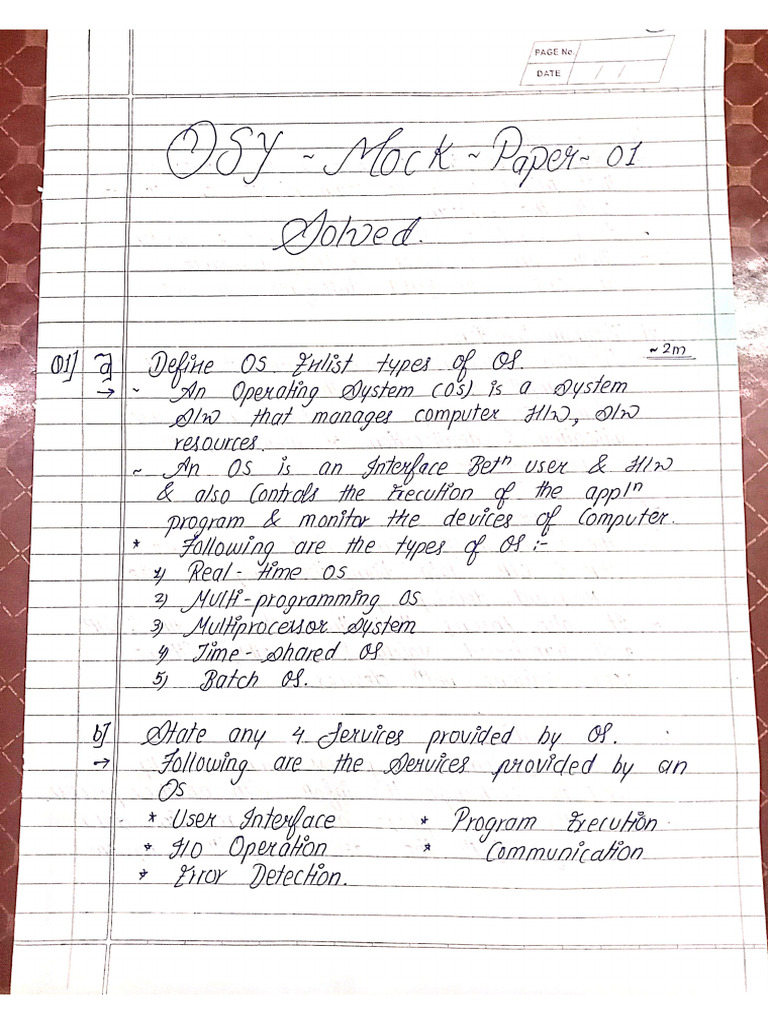 PAGE No.
DATE / /
OSY ~ Mock ~ Paper ~ 01
Solved.
01] a] Define OS Enlist types of OS. ~ 2m
→ ~ An Operating System (OS) is a System
S/W that manages computer H/W, S/W
resources.
~ An OS is an Interface Betn user & H/W
& also Controls the Execution of the appln
program & monitor the devices of Computer.
* Following are the types of OS :-
1) Real - time OS
2) Multi - programming OS
3) Multiprocessor System
4) Time - Shared OS
5) Batch OS.
b] State any 4 Services provided by OS.
→ Following are the Services provided by an
OS
* User Interface * Program Execution
* I/O Operation * Communication
* Error Detection.